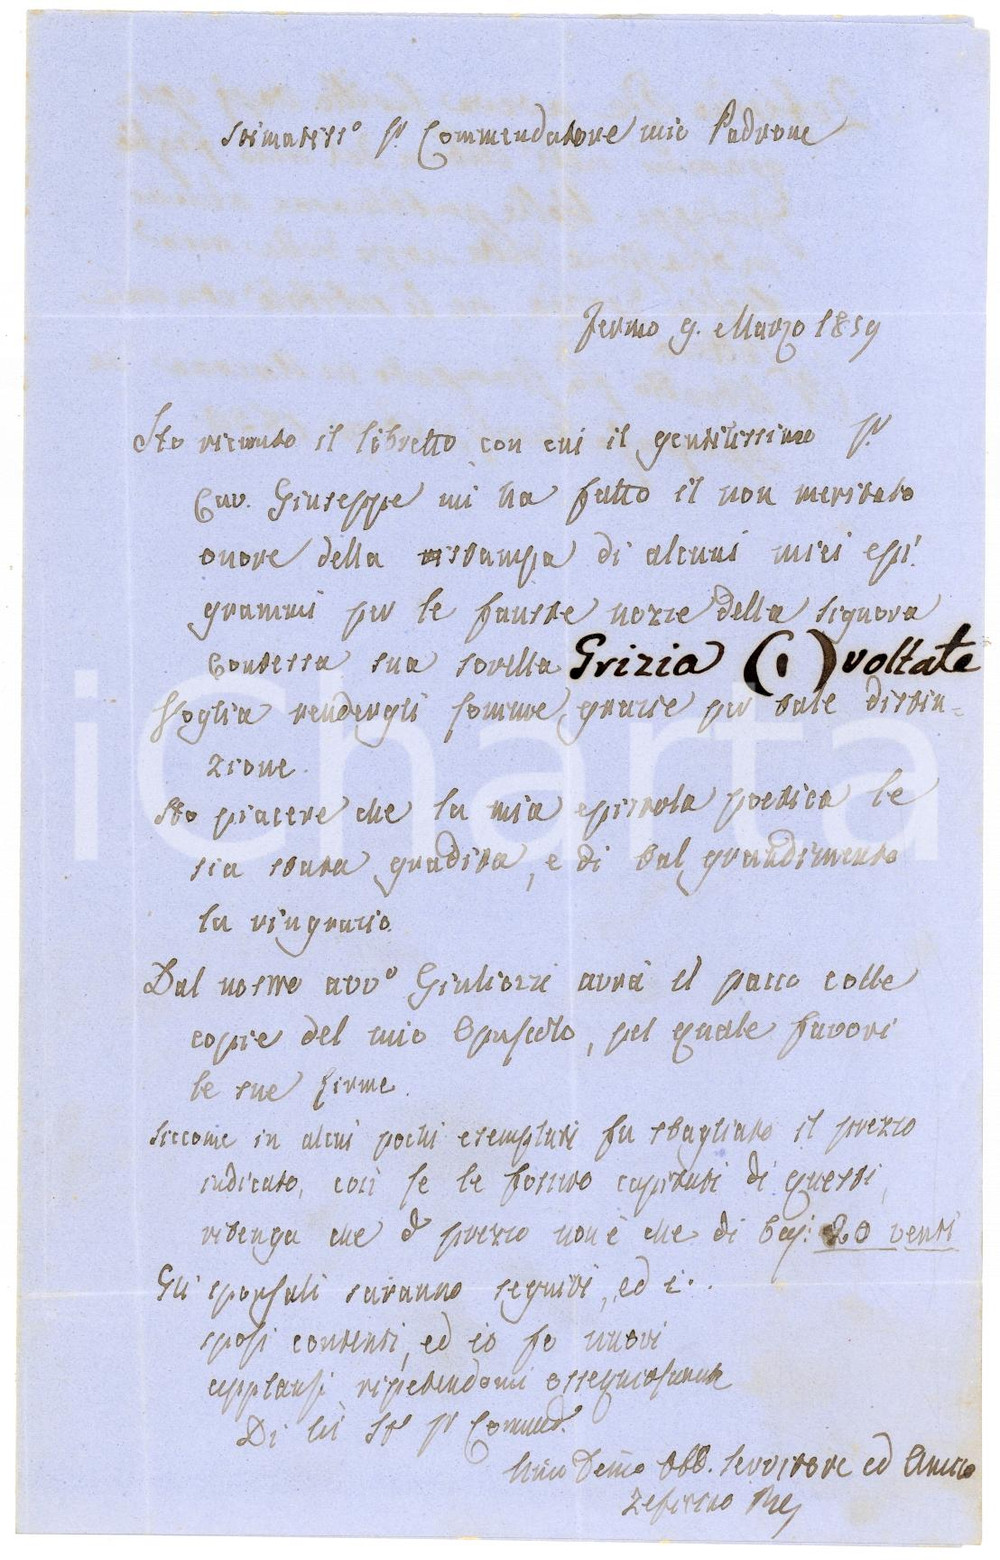 Stimatiss.º Sr. Commendatore mio Padrone
Fermo 9. Marzo 1859
Ho ricevuto il libretto con cui il gentilissimo Sr.
Cav. Giuseppe mi ha fatto il non meritato
onore della ristampa di alcuni miei epi:
grammi per le fauste nozze della signora
Contessa sua sorella Grizia (1) voltate
Voglia rendergli somme grazie per tale distin=
zione.
Ho piacere che la mia epistola poetica le
sia stata gradita, e di tal gradimento
la ringrazio.
Dal nostro avvº Giuliozzi avrà il pacco colle
copie del mio Opuscolo, pel quale favorì
le sue firme.
Siccome in alcuni pochi esemplari fu sbagliato il prezzo
indicato, così se le fossero capitati di questi,
ritenga che dº prezzo non è che di baj: 20 venti
Gli sponsali saranno seguiti, ed i..
sposi contenti, ed io fo nuovi
applausi ripetendomi ossequiosamente
Di lei Sr. Commend.
Umo Devmo Obb. Servitore ed Amico
Zefirino Re
iCharta